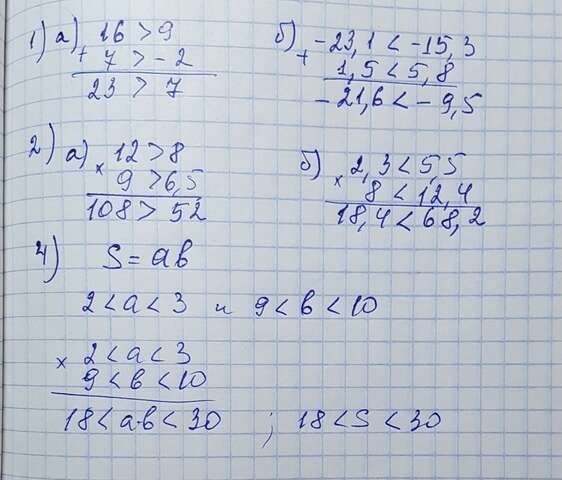 1) а) 16 > 9
+ 7 > - 2
23 > 7
б) + -23,1 < -15,3
1,5 < 5,8
- 21,6 < - 9,5
2) а) × 12 > 8
9 > 6,5
108 > 52
б) × 2,3 < 5,5
8 < 12,4
18,4 < 68,2
4) S = ab
2 < a < 3 и 9 < b < 10
× 2 < a < 3
9 < b < 10
18 < a·b < 30 ; 18 < S < 30